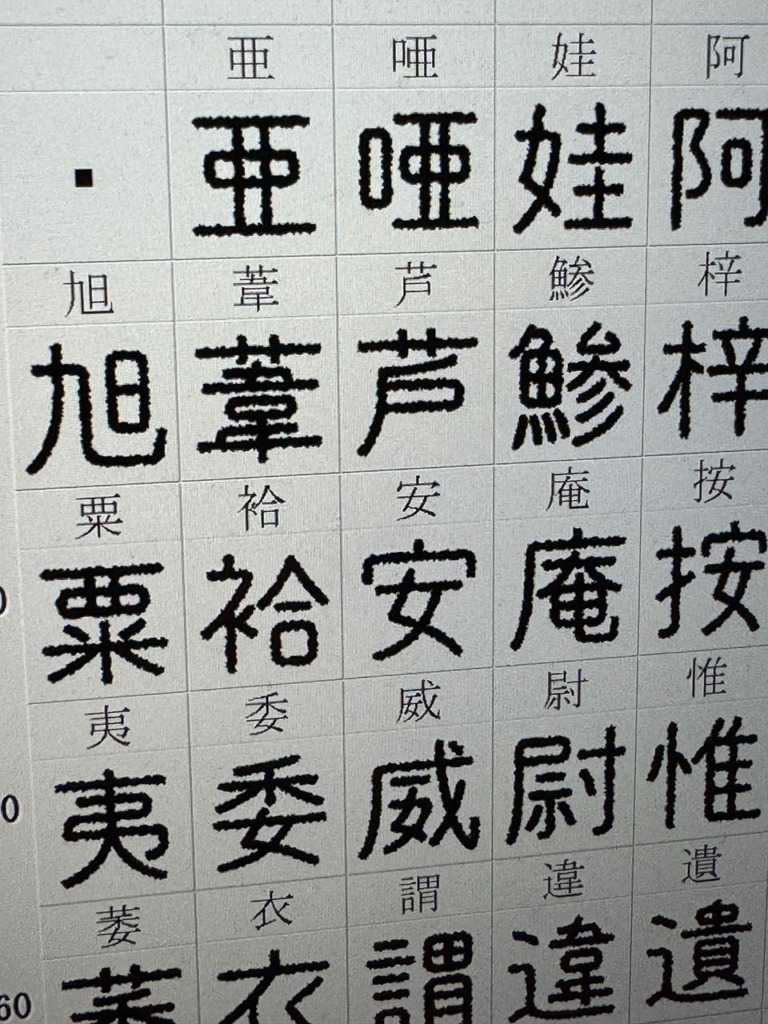 亜 唖 娃 阿
亜 唖 娃 阿
旭 葦 芦 鯵 梓
旭 葦 芦 鯵 梓
粟 袷 安 庵 按
0 粟 袷 安 庵 按
夷 委 威 尉 惟
0 夷 委 威 尉 惟
萎 衣 謂 違 遺
60 萎 衣 謂 違 遺